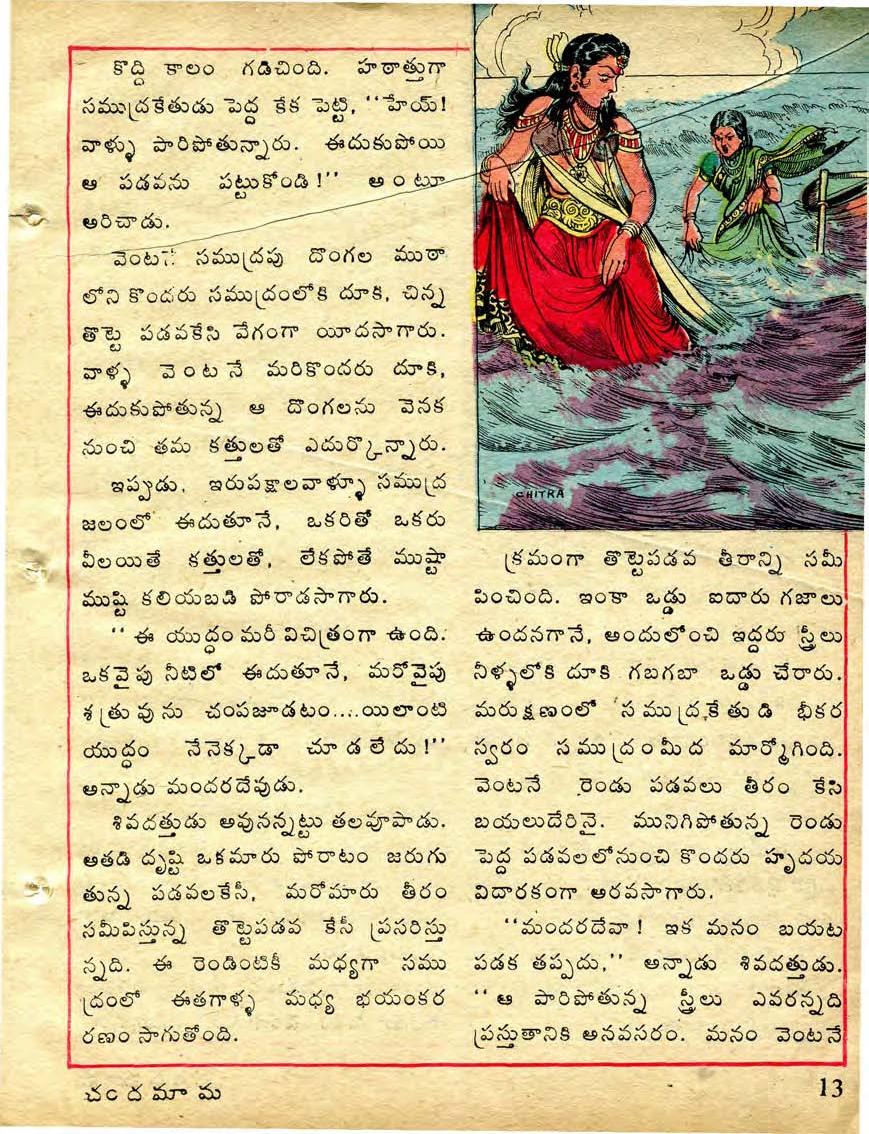 కొద్ది కాలం గడిచింది. హఠాత్తుగా
సముద్రకేతుడు పెద్ద కేక పెట్టి, “హేయ్!
వాళ్ళు పారిపోతున్నారు. ఈదుకుపోయి
ఆ పడవను పట్టుకోండి!” అంటూ
అరిచాడు.
వెంటనే సముద్రపు దొంగల ముఠా
లోని కొందరు సముద్రంలోకి దూకి, చిన్న
తొట్టె పడవకేసి వేగంగా యీదసాగారు.
వాళ్ళ వెంటనే మరికొందరు దూకి,
ఈదుకుపోతున్న ఆ దొంగలను వెనక
నుంచి తమ కత్తులతో ఎదుర్కొన్నారు.
ఇప్పుడు, ఇరుపక్షాలవాళ్ళూ సముద్ర
జలంలో ఈదుతూనే, ఒకరితో ఒకరు
వీలయితే కత్తులతో, లేకపోతే ముష్టా
ముష్టి కలియబడి పోరాడసాగారు.
“ఈ యుద్ధం మరీ విచిత్రంగా ఉంది.
ఒకవైపు నీటిలో ఈదుతూనే, మరోవైపు
శత్రువును చంపజూడటం....యిలాంటి
యుద్ధం నేనెక్కడా చూడలేదు!”
అన్నాడు మందరదేవుడు.
శివదత్తుడు అవునన్నట్టు తలవూపాడు.
అతడి దృష్టి ఒకమారు పోరాటం జరుగు
తున్న పడవలకేసీ, మరోమారు తీరం
సమీపిస్తున్న తొట్టెపడవ కేసీ ప్రసరిస్తు
న్నది. ఈ రెండింటికీ మధ్యగా సము
ద్రంలో ఈతగాళ్ళ మధ్య భయంకర
రణం సాగుతోంది.
CHITRA
క్రమంగా తొట్టెపడవ తీరాన్ని సమీ
పించింది. ఇంకా ఒడ్డు ఐదారు గజాలు
ఉందనగానే, అందులోంచి ఇద్దరు స్త్రీలు
నీళ్ళలోకి దూకి గబగబా ఒడ్డు చేరారు.
మరుక్షణంలో సముద్రకేతుడి భీకర
స్వరం సముద్రంమీద మార్మోగింది.
వెంటనే రెండు పడవలు తీరం కేసి
బయలుదేరినై. మునిగిపోతున్న రెండు
పెద్ద పడవలలోనుంచి కొందరు హృదయ
విదారకంగా అరవసాగారు.
“మందరదేవా! ఇక మనం బయట
పడక తప్పదు,” అన్నాడు శివదత్తుడు.
“ఆ పారిపోతున్న స్త్రీలు ఎవరన్నది
ప్రస్తుతానికి అనవసరం. మనం వెంటనే
చందమామ
13